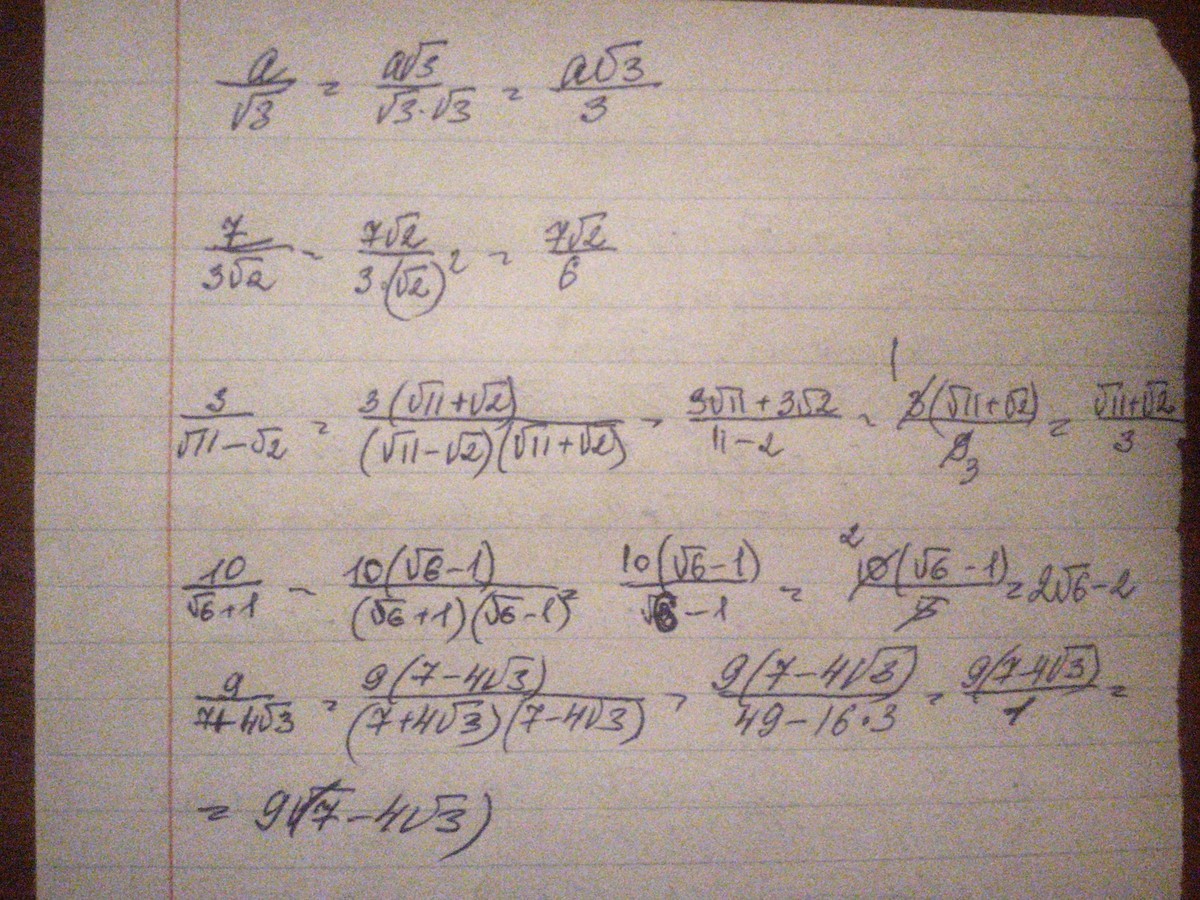 a/√3 = a√3/(√3·√3) = a√3/3
7/(3√2) = 7√2/(3·(√2)²) = 7√2/6
3/(√11-√2) = 3(√11+√2)/((√11-√2)(√11+√2)) = (3√11+3√2)/(11-2) = 3(√11+√2)/9 = (√11+√2)/3
10/(√6+1) = 10(√6-1)/((√6+1)(√6-1)) 10(√6-1)/(6-1) = 10(√6-1)/5 = 2√6-2
9/(7+4√3) = 9(7-4√3)/((7+4√3)(7-4√3)) = 9(7-4√3)/(49-16·3) = 9(7-4√3)/1 =
= 9(7-4√3)